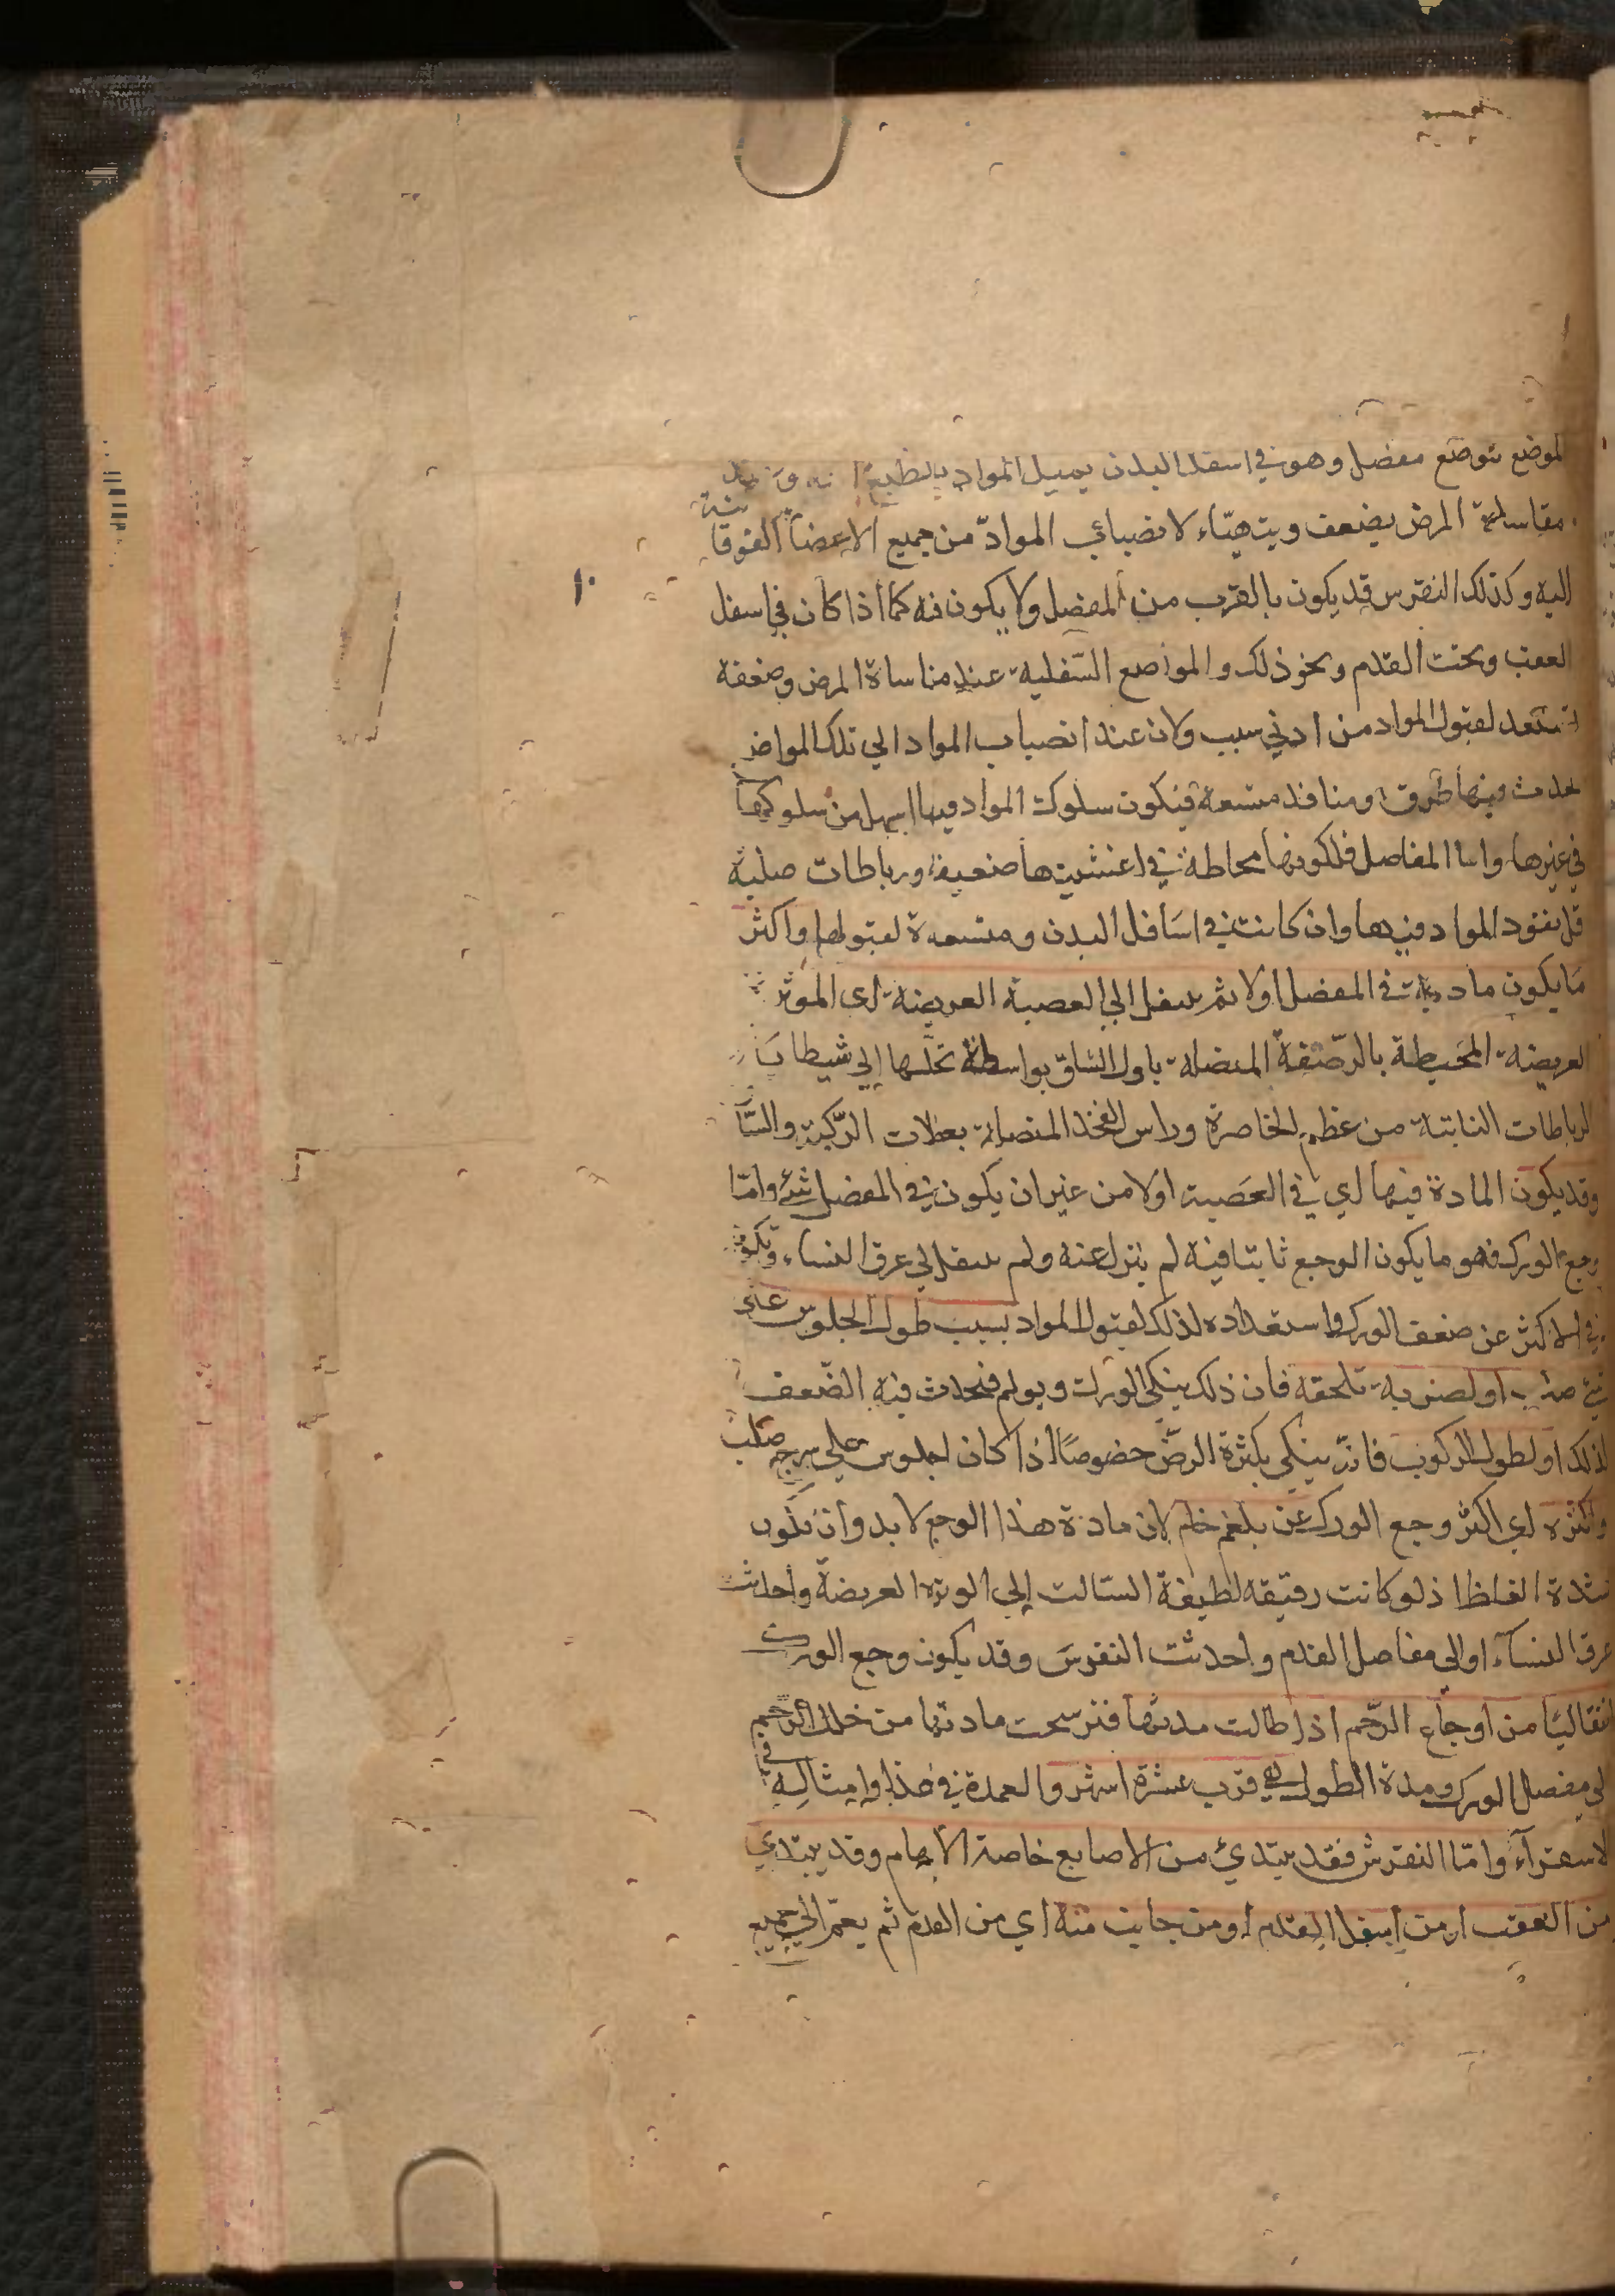 الموضع توضع مفصل وهو في اسفل البدن يميل المواد بالطبع
مقاساة المرض يضعف ويتهيّاء لانصباب الموادّ من جميع الاعضآ الفوقا
اليه وكذلك النقرس قد يكون بالقرب من المفصل ولا يكون فيه كما اذا كان في اسفل
العقب وتحت القدم ونحو ذلك والمواضع السّفلية عند مقاساة المرض وضعفه
تستعد لقبول المواد من ادني سبب ولان عند انصباب المواد الي تلك المواضع
يحدث فيها طرق ومنافذ متسعة فيكون سلوك المواد فيها اسهل من سلوكها
في غيرها واما المفاصل فلكونها محاطة في اغشيتها ضعيفة ورباطات صلبة
قل نفوذ المواد فيها وان كانت في اسَافل البدن ومتسعة لقبولها واكثر
مَا يكون مادته في المفصل اولا ثم ينتقل الي العصبة العريضة اى الموتر
العريضة المحَيطة بالرّضفة المتصلة باول السّاق بواسطة تخللها إلي شيطايَا
الرباطات النابتة من عظم الخاصرة وراس الفخذ المتصلة بعضلات الرّكبة والسَّا
وقد يكون المادة فيها اي في العَصبة اولا من غير ان يكون في المفصل شئ وامّا
وجع الورك فهو ما يكون الوجع ثابتا فيه لم ينزل عنه ولم ينتقل الي عرق النساء وتكون
في الاكثر عن ضعف الورك واستعداده لذلك لقبول المواد بسبب طول الجلوس على
شئ صلب او لضربة تلحقه فان ذلك ينكي الورك ويولم فيحدث فيه الضّعف
لذلك او لطول الركوب فانّه ينكي بكثرة الرضّ خصوصًا اذا كان الجلوس علي سرج صلب
واكثره اي اكثر وجع الورك عن بلغم خام لان مادة هذا الوجع لا بد وان يكون
شدة الغلظ اذ لو كانت رقيقه لطيفة لسالت إلي الوتره العريضة واحدثت
عرق النسآء او الي مفاصل القدم واحدثت النقرسَ وقد يكون وجع الورك
انتقاليًا من اوجاع الرّحم اذا طالت مدتها فترشحت مادتها من خلل الرحم
الي مفصل الورك ومدة الطول الي قرب عشرة اشهر والعمدة في هذا وامثاله في
الاستقرآء وامّا النقرس فقد يبتدئ من الاصابع خاصة الابهام وقد يبتدي
من العقب او من اسفل القدم او من جانب منه اي من القدم ثم يعمّ الي جميع
١٠